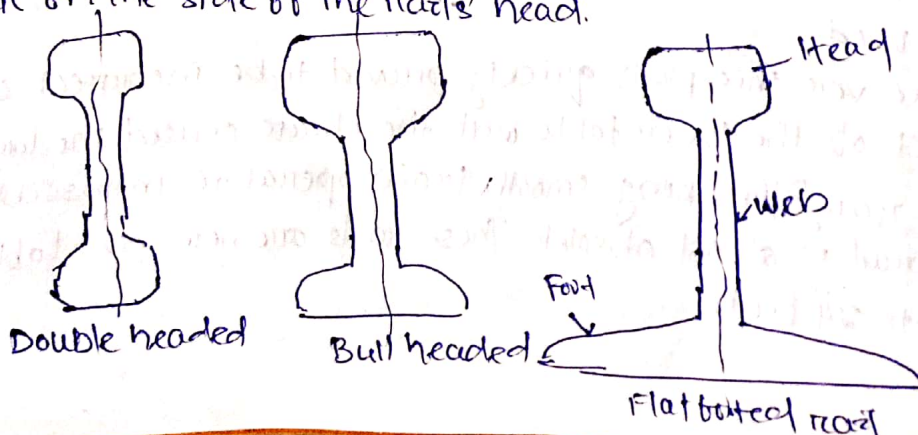 on the side of the rails head.
Head
Web
Foot
Double headed
Bull headed
Flat footed rail